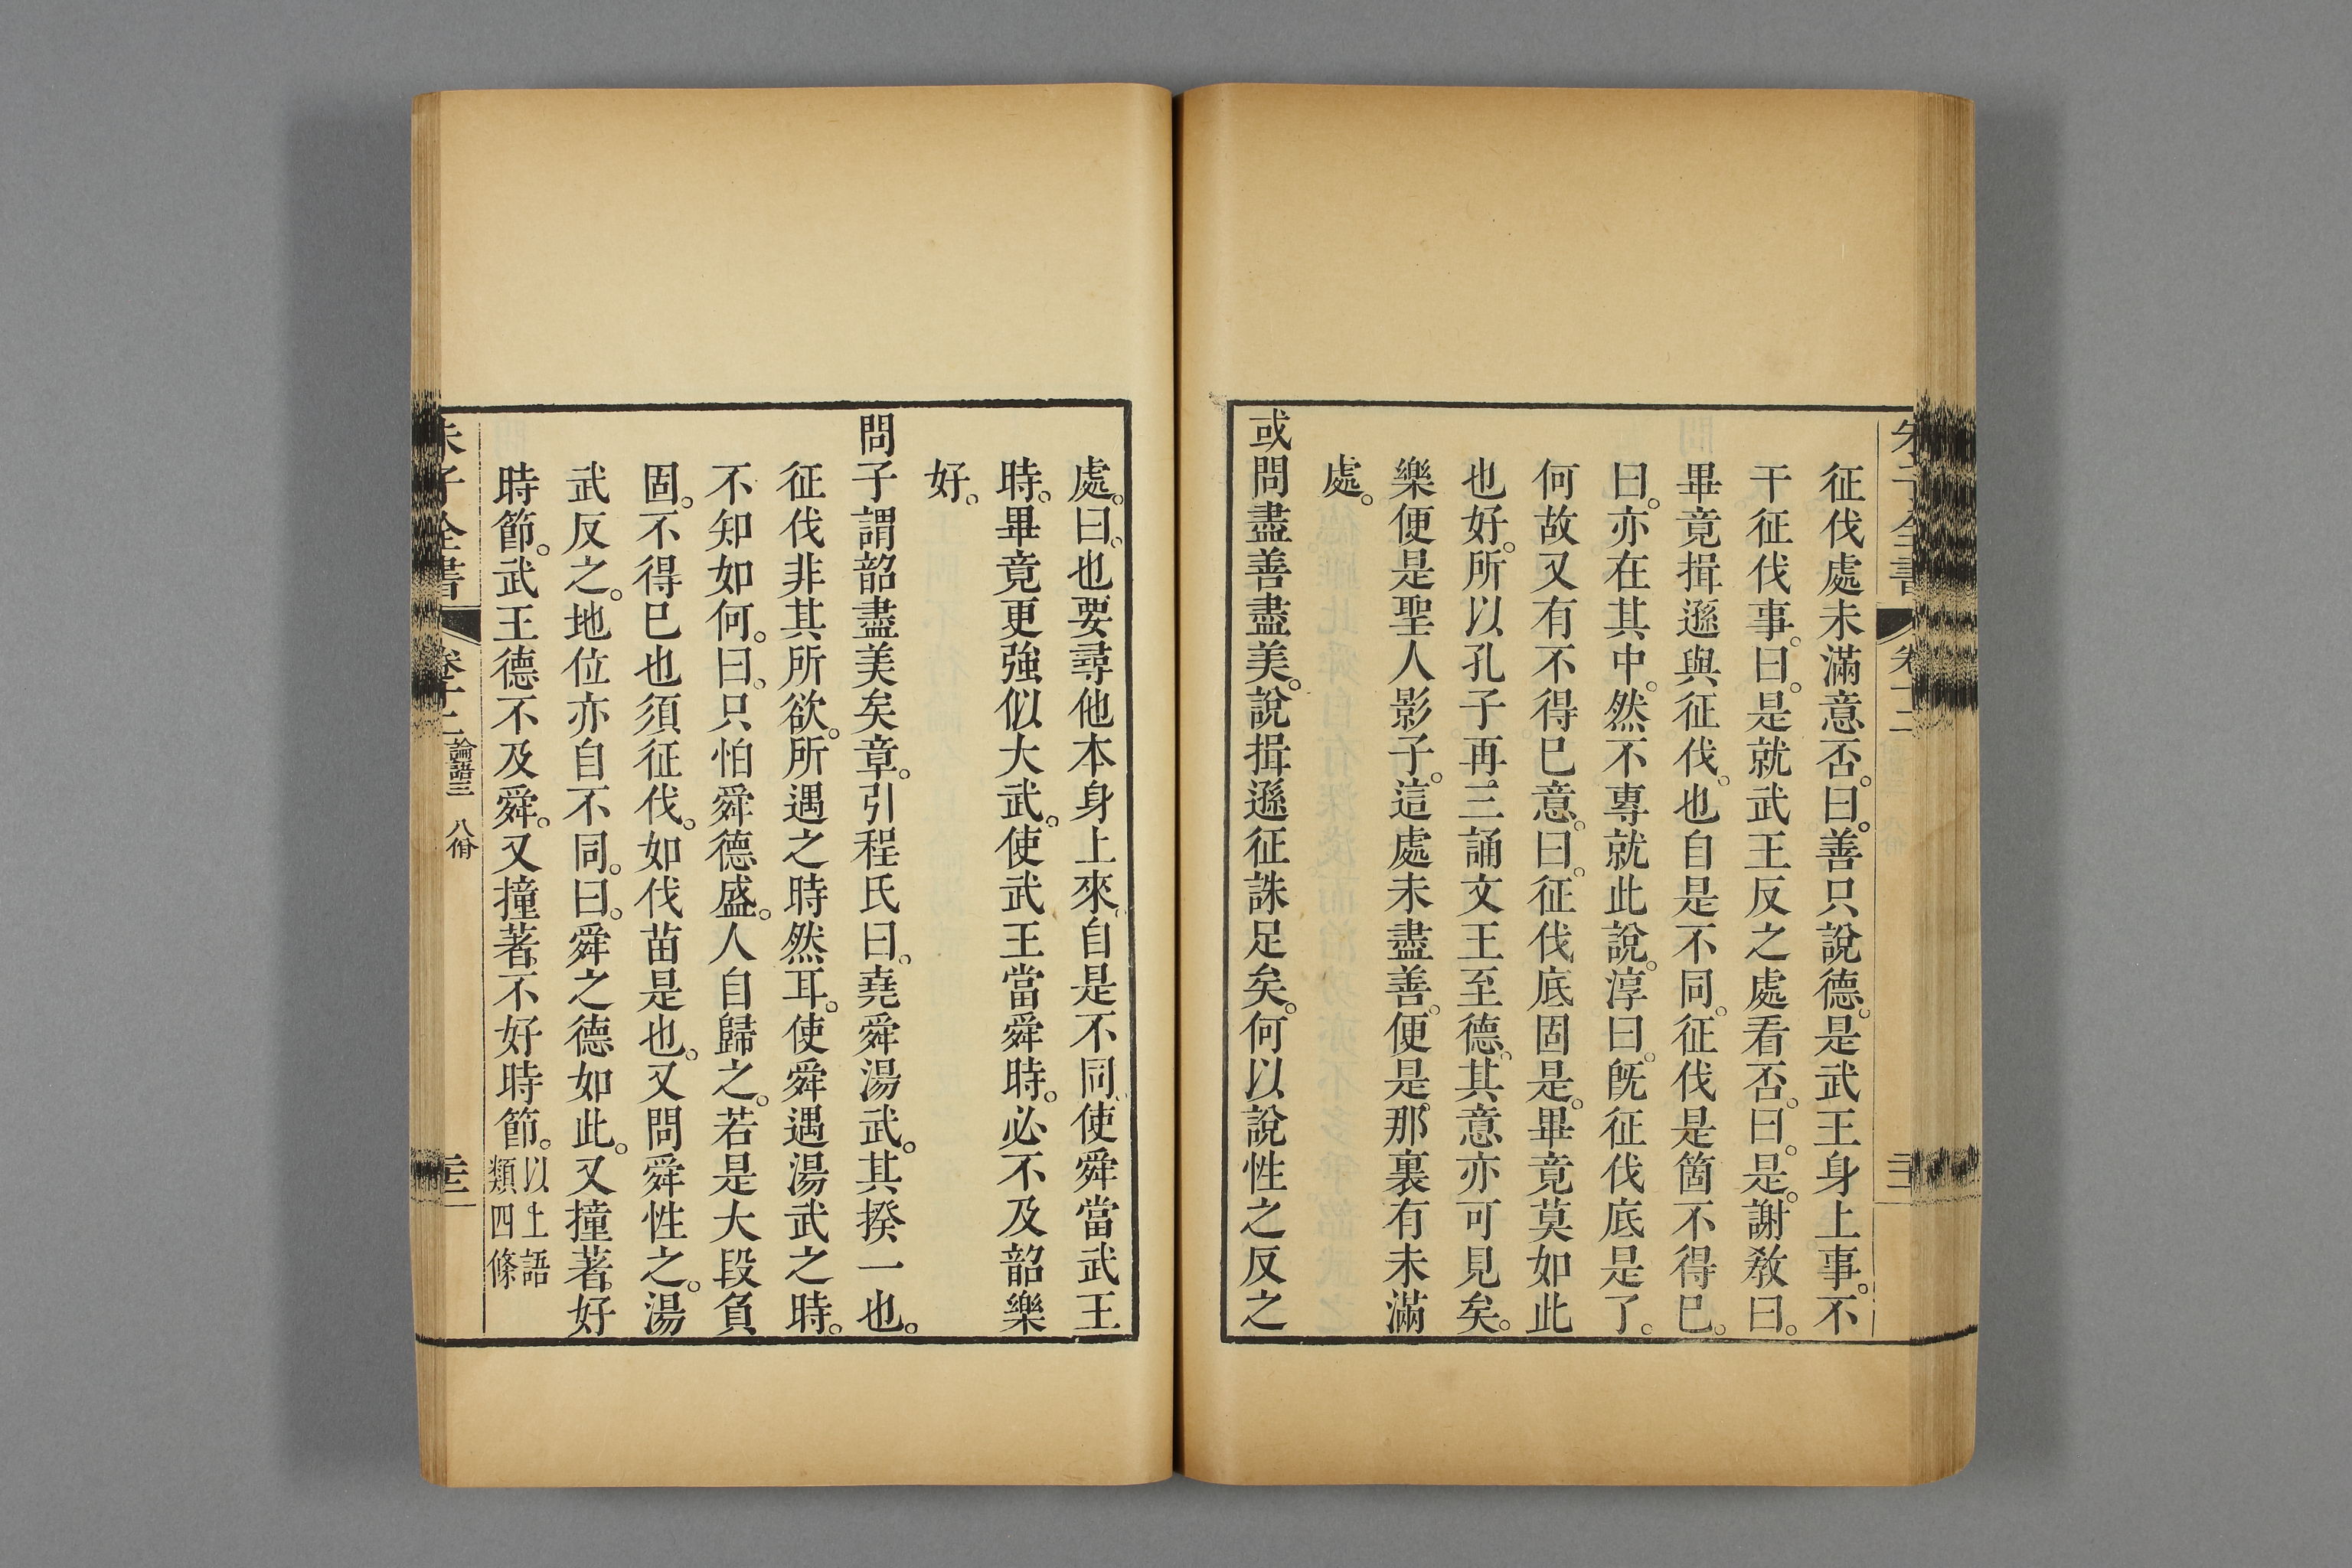 征伐處未滿意否。曰。善只說德。是武王身上事。不
干征伐事。曰。是就武王反之處看否。曰。是。謝敎曰。
畢竟揖遜與征伐。也自是不同。征伐是箇不得已。
曰。亦在其中。然不專就此說。淳曰。旣征伐底是了。
何故又有不得已意。曰。征伐底固是。畢竟莫如此
也好。所以孔子再三誦文王至德。其意亦可見矣。
樂便是聖人影子。這處未盡善。便是那裏有未滿
處。
或問盡善盡美。說揖遜征誅足矣。何以說性之反之
處。曰。也要尋他本身上來。自是不同。使舜當武王
時。畢竟更強似大武。使武王當舜時。必不及韶樂
好。
問子謂韶盡美矣章。引程氏曰。堯舜湯武。其揆一也。
征伐非其所欲。所遇之時然耳。使舜遇湯武之時。
不知如何。曰。只怕舜德盛。人自歸之。若是大段負
固。不得已也須征伐。如伐苗是也。又問舜性之。湯
武反之。地位亦自不同。曰。舜之德如此。又撞著好
時節。武王德不及舜。又撞著不好時節。以上語類四條
朱子全書 卷十二 論語三 八佾